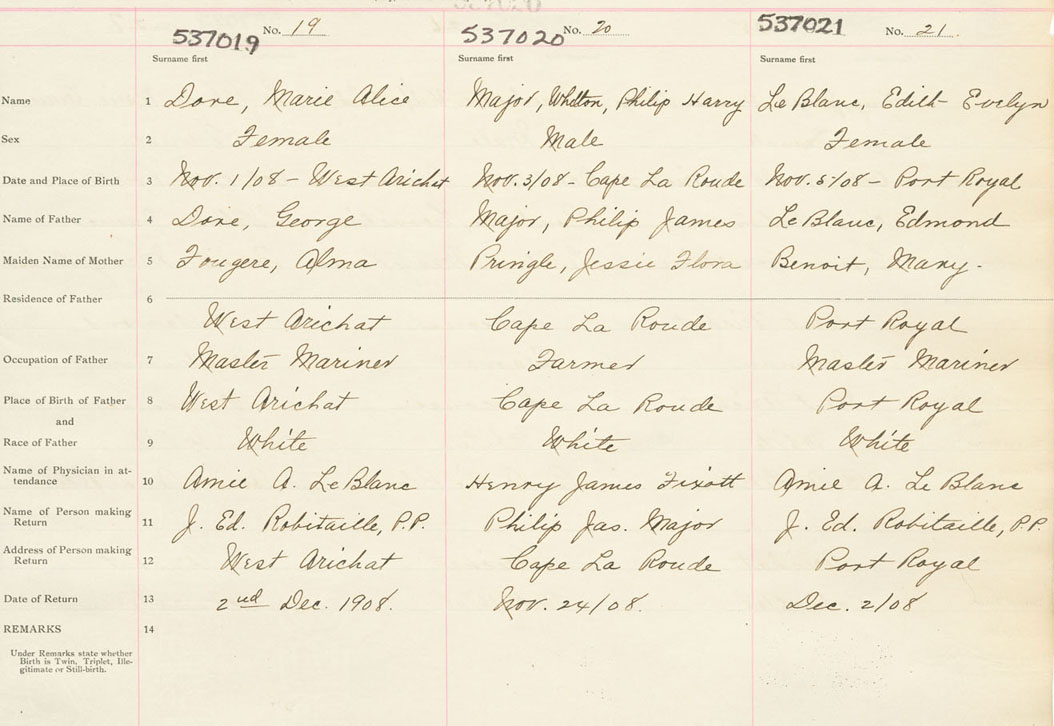 537020
537019 No. 19 537020 No. 20 537021 No. 21.
Surname first Surname first Surname first
Name 1 Dore, Marie Alice Major, Whitton, Philip Harry Le Blanc, Edith Evelyn
Sex 2 Female Male Female
Date and Place of Birth 3 Nov. 1/08 - West Arichat Nov. 3/08 - Cape La Ronde Nov. 5/08 - Port Royal
Name of Father 4 Dore, George Major, Philip James Le Blanc, Edmond
Maiden Name of Mother 5 Fougere, Alma Pringle, Jessie Flora Benoit, Mary.
Residence of Father 6
West Arichat Cape La Ronde Port Royal
Occupation of Father 7 Master Mariner Farmer Master Mariner
Place of Birth of Father 8 West Arichat Cape La Ronde Port Royal
and
Race of Father 9 White White White
Name of Physician in at-
tendance 10 Amie A. Le Blanc Henry James Fixott Amie A. Le Blanc
Name of Person making
Return 11 J. Ed. Robitaille, P.P. Philip Jas. Major J. Ed. Robitaille, P.P.
Address of Person making
Return 12 West Arichat Cape La Ronde Port Royal
Date of Return 13 2nd Dec. 1908. Nov. 24/08. Dec. 2/08
REMARKS 14
Under Remarks state whether
Birth is Twin, Triplet, Ille-
gitimate or Still-birth.